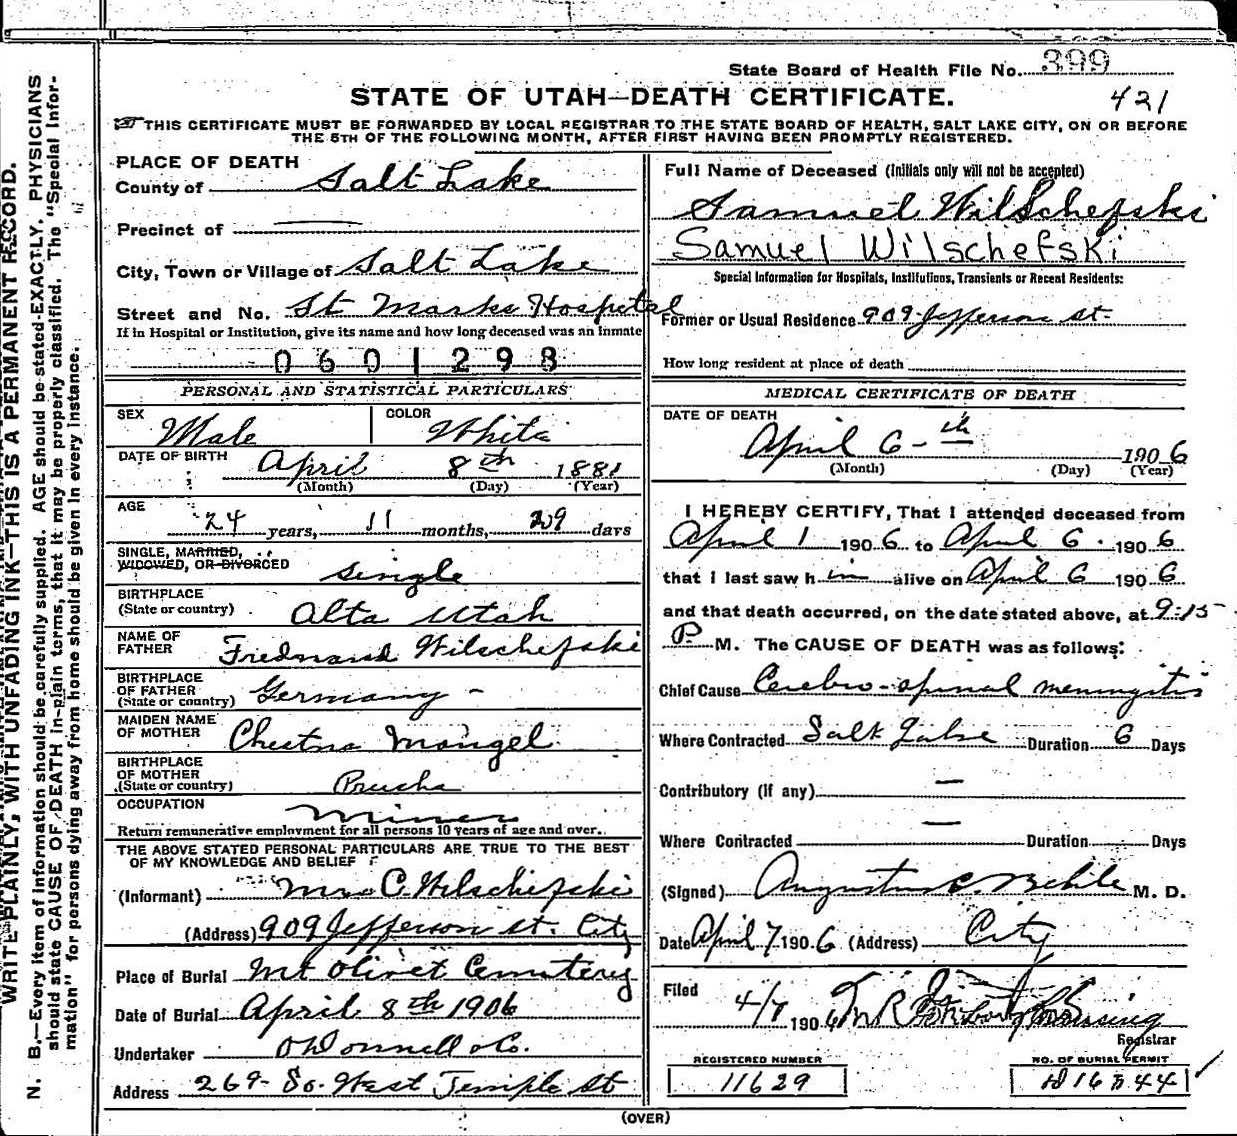 State Board of Health File No. 399
STATE OF UTAH—DEATH CERTIFICATE. 421
THIS CERTIFICATE MUST BE FORWARDED BY LOCAL REGISTRAR TO THE STATE BOARD OF HEALTH, SALT LAKE CITY, ON OR BEFORE
THE 5TH OF THE FOLLOWING MONTH, AFTER FIRST HAVING BEEN PROMPTLY REGISTERED.
WRITE PLAINLY, WITH UNFADING INK—THIS IS A PERMANENT RECORD.
N. B.—Every item of information should be carefully supplied. AGE should be stated EXACTLY. PHYSICIANS
should state CAUSE OF DEATH in plain terms, that it may be properly classified. The "Special Infor-
mation" for persons dying away from home should be given in every instance.
PLACE OF DEATH
County of Salt Lake
Precinct of
City, Town or Village of Salt Lake
Street and No. St Marks Hospital
If in Hospital or Institution, give its name and how long deceased was an inmate
0601298
PERSONAL AND STATISTICAL PARTICULARS
SEX Male COLOR White
DATE OF BIRTH April 8th 1881
(Month) (Day) (Year)
AGE 24 years, 11 months, 29 days
SINGLE, MARRIED,
WIDOWED, OR DIVORCED Single
BIRTHPLACE
(State or country) Alta Utah
NAME OF
FATHER Frednand Wilschefski
BIRTHPLACE
OF FATHER
(State or country) Germany -
MAIDEN NAME
OF MOTHER Mangel
BIRTHPLACE
OF MOTHER
(State or country)
OCCUPATION Miner
Return remunerative employment for all persons 10 years of age and over.
THE ABOVE STATED PERSONAL PARTICULARS ARE TRUE TO THE BEST
OF MY KNOWLEDGE AND BELIEF
(Informant) Mrs C. Wilschefski
(Address) 909 Jefferson St. City
Place of Burial Mt Olivet Cemetery
Date of Burial April 8th 1906
Undertaker O'Donnell & Co.
Address 269 So. West Temple St
Full Name of Deceased (Initials only will not be accepted)
Samuel Wilschefski
Samuel Wilschefski
Special Information for Hospitals, Institutions, Transients or Recent Residents:
Former or Usual Residence 909 Jefferson St.
How long resident at place of death
MEDICAL CERTIFICATE OF DEATH
DATE OF DEATH
April 6-th 1906
(Month) (Day) (Year)
I HEREBY CERTIFY, That I attended deceased from
April 1 1906 to April 6. 1906
that I last saw him alive on April 6 1906
and that death occurred, on the date stated above, at 9:15
P. M. The CAUSE OF DEATH was as follows:
Chief Cause Cerebro-spinal meningitis
Where Contracted Salt Lake Duration 6 Days
Contributory (if any) —
Where Contracted — Duration Days
(Signed) Augustus C. Behle M. D.
Date April 7 1906 (Address) City
Filed 4/7 1906
Registrar
REGISTERED NUMBER
11629
NO. OF BURIAL PERMIT
(OVER)